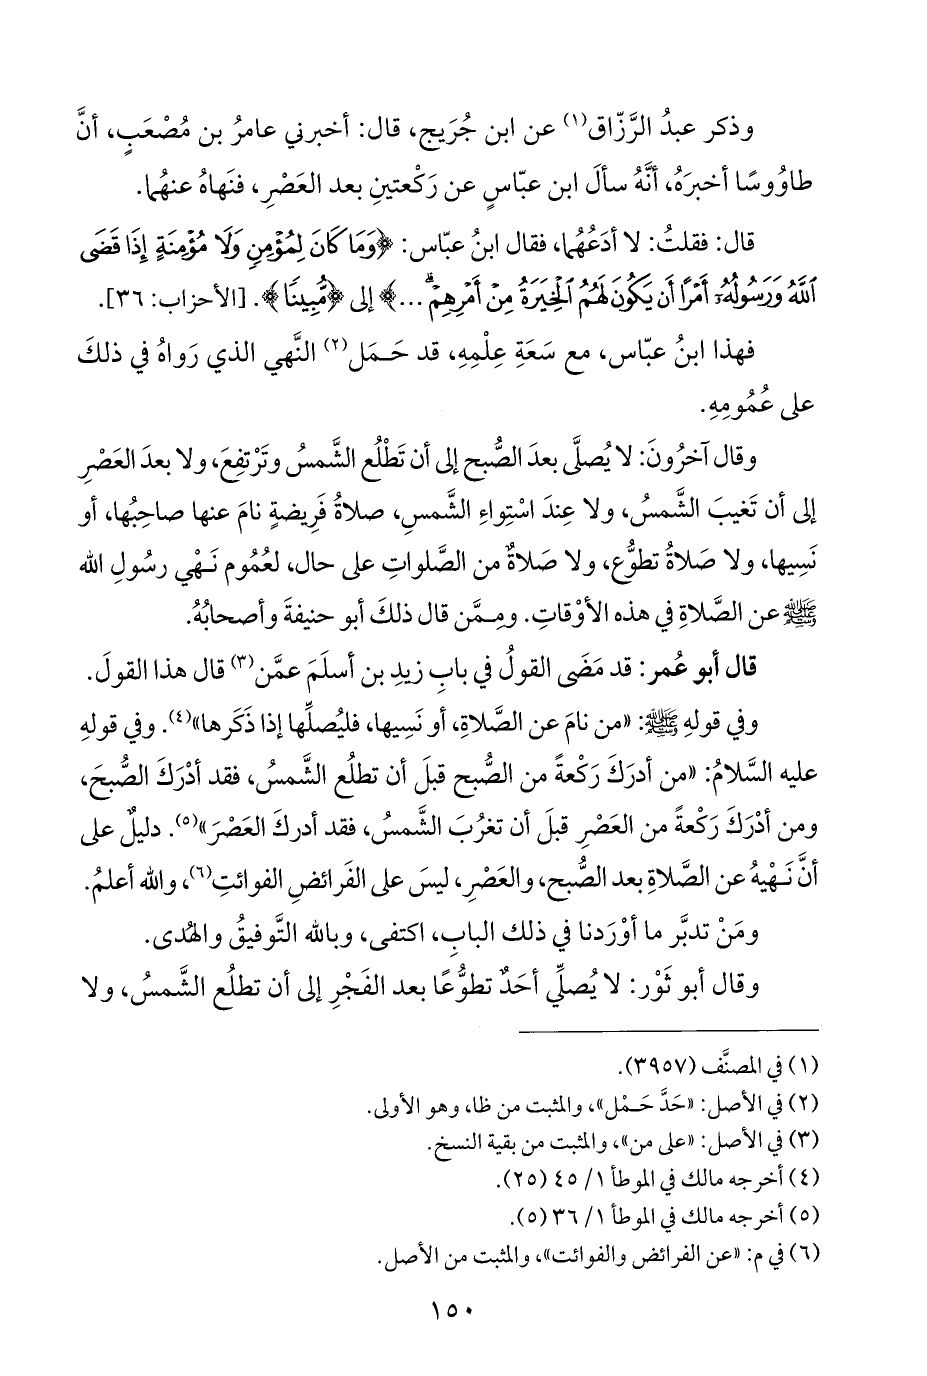 وذكر عبدُ الرَّزّاق(١) عن ابن جُرَيج، قال: أخبرني عامرُ بن مُصْعَبٍ، أنَّ
طاوُوسًا أخبرَهُ، أنَّهُ سألَ ابن عبّاسٍ عن رَكْعتينِ بعد العَصْرِ، فنَهاهُ عنهُما.
قال: فقلتُ: لا أدَعُهُما، فقال ابنُ عبّاس: ﴿وَمَا كَانَ لِمُؤْمِنٍ وَلَا مُؤْمِنَةٍ إِذَا قَضَى
ٱللَّهُ وَرَسُولُهُۥٓ أَمْرًا أَن يَكُونَ لَهُمُ ٱلْخِيَرَةُ مِنْ أَمْرِهِمْ ۗ ...﴾ إلى ﴿مُّبِينًا﴾. [الأحزاب: ٣٦].
فهذا ابنُ عبّاس، مع سَعَةِ عِلْمِهِ، قد حَمَل(٢) النَّهي الذي رَواهُ في ذلكَ
على عُمُومِهِ.
وقال آخرُونَ: لا يُصلَّى بعدَ الصُّبح إلى أن تَطْلُع الشَّمسُ وتَرْتفِعَ، ولا بعدَ العَصْرِ
إلى أن تَغيبَ الشَّمسُ، ولا عِندَ اسْتِواءِ الشَّمسِ، صلاةُ فَرِيضةٍ نامَ عنها صاحِبُها، أو
نَسِيها، ولا صَلاةُ تطوُّع، ولا صَلاةٌ من الصَّلواتِ على حال، لعُمُوم نَهْي رسُولِ الله
ﷺ عن الصَّلاةِ في هذه الأوْقاتِ. ومِمَّن قال ذلكَ أبو حنيفةَ وأصحابُهُ.
قال أبو عُمر: قد مَضَى القولُ في بابِ زيدِ بن أسلَمَ عمَّن(٣) قال هذا القولَ.
وفي قولهِ ﷺ: «من نامَ عن الصَّلاةِ، أو نَسِيها، فليُصلِّها إذا ذَكَرها»(٤). وفي قولهِ
عليه السَّلامُ: «من أدرَكَ رَكْعةً من الصُّبح قبلَ أن تطلُع الشَّمسُ، فقد أدْرَكَ الصُّبحَ،
ومن أدْرَكَ رَكْعةً من العَصْرِ قبلَ أن تغرُبَ الشَّمسُ، فقد أدركَ العَصْرَ»(٥). دليلٌ على
أنَّ نَهْيهُ عن الصَّلاةِ بعد الصُّبح، والعَصْرِ، ليسَ على الفَرائضِ الفوائتِ(٦)، والله أعلمُ.
ومَنْ تدبَّر ما أوْرَدنا في ذلك البابِ، اكتفى، وبالله التَّوفيقُ والهُدى.
وقال أبو ثَوْر: لا يُصلِّي أحَدٌ تطوُّعًا بعد الفَجْرِ إلى أن تطلُع الشَّمسُ، ولا
(١) في المصنَّف (٣٩٥٧).
(٢) في الأصل: «حَدَّ حَمْل»، والمثبت من ظا، وهو الأولى.
(٣) في الأصل: «على من»، والمثبت من بقية النسخ.
(٤) أخرجه مالك في الموطأ ١/ ٤٥ (٢٥).
(٥) أخرجه مالك في الموطأ ١/ ٣٦ (٥).
(٦) في م: «عن الفرائض والفوائت»، والمثبت من الأصل.
١٥٠